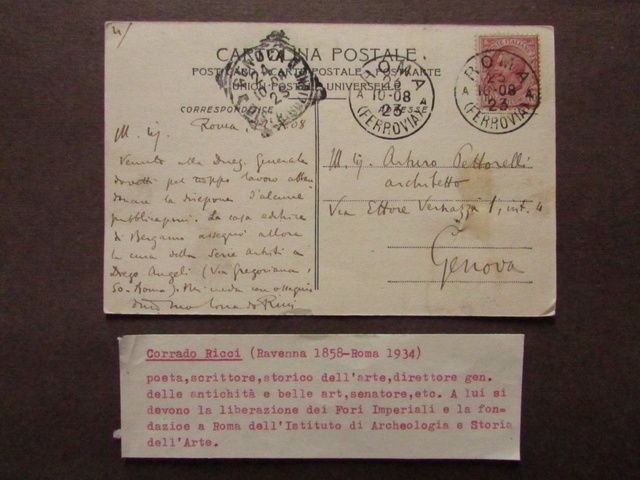 4/
CARTOLINA POSTALE
POSTCARD CARTE POSTALE POSTKARTE
UNION POSTALE UNIVERSELLE
CORRESPONDENCE
ADRESSE
ROMA
23
A 10-08 A
23
(FERROVIA)
ROMA
23
A 10-08 A
23
(FERROVIA)
GENOVA
24
10-08
23
M. Sig. Roma, 08
Venuto alla Direz. Generale
dovetti pel troppo lavoro abban
donare la direzione d'alcune
pubblicazioni. La casa editrice
di Bergamo assegnò allora
la cura della Serie Artisti a
Diego Angeli (Via Gregoriana,
50-Roma). Mi creda con ossequio
suo Corrado Ricci
M. Sig. Arturo Pettorelli
architetto
Via Ettore Vernazza 1, int. 4
Genova
Corrado Ricci (Ravenna 1858-Roma 1934)
poeta,scrittore,storico dell'arte,direttore gen.
delle antichità e belle art,senatore,etc. A lui si
devono la liberazione dei Fori Imperiali e la fon-
dazioe a Roma dell'Istituto di Archeologia e Storia
dell'Arte.